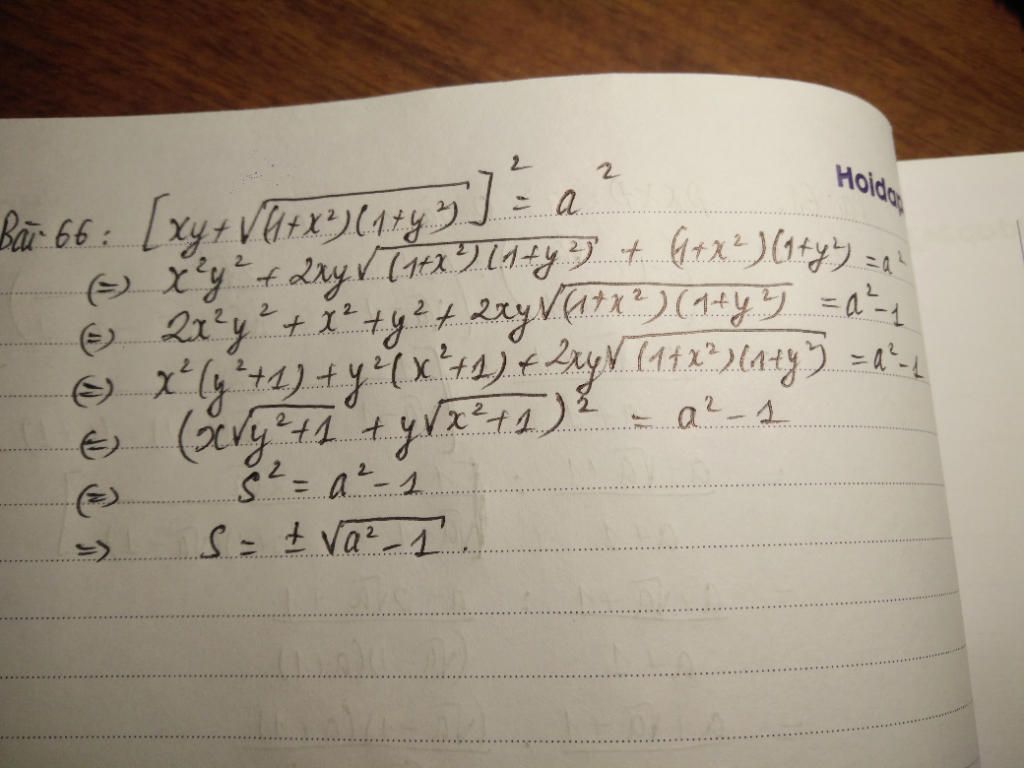 Hoidap
Bài 66: [xy + √(1+x²)(1+y²)]² = a²
(=) x²y² + 2xy√(1+x²)(1+y²) + (1+x²)(1+y²) = a²
(=) 2x²y² + x² + y² + 2xy√(1+x²)(1+y²) = a²-1
(=) x²(y²+1) + y²(x²+1) + 2xy√(1+x²)(1+y²) = a²-1
(=) (x√y²+1 + y√x²+1)² = a² - 1
(=) S² = a² - 1
=> S = ± √a² - 1.